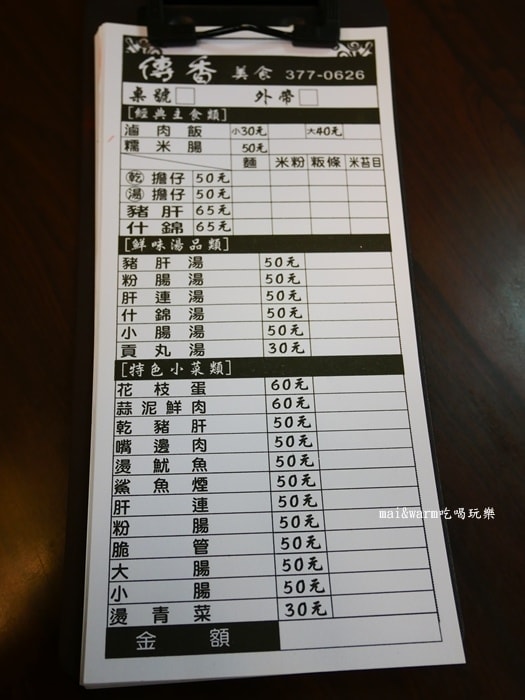 傳香 美食 377-0626
桌號 外帶
[經典主食類]
滷肉飯 小30元 大40元
糯米腸 50元
麵 米粉 粄條 米苔目
乾擔仔 50元
湯擔仔 50元
豬肝 65元
什錦 65元
[鮮味湯品類]
豬肝湯 50元
粉腸湯 50元
肝連湯 50元
什錦湯 50元
小腸湯 50元
貢丸湯 30元
[特色小菜類]
花枝蛋 60元
蒜泥鮮肉 60元
乾豬肝 50元
嘴邊肉 50元
燙魷魚 50元
鯊魚煙 50元
肝連 50元
粉腸 50元
脆管 50元
大腸 50元
小腸 50元
燙青菜 30元
金額
mai&warm吃喝玩樂